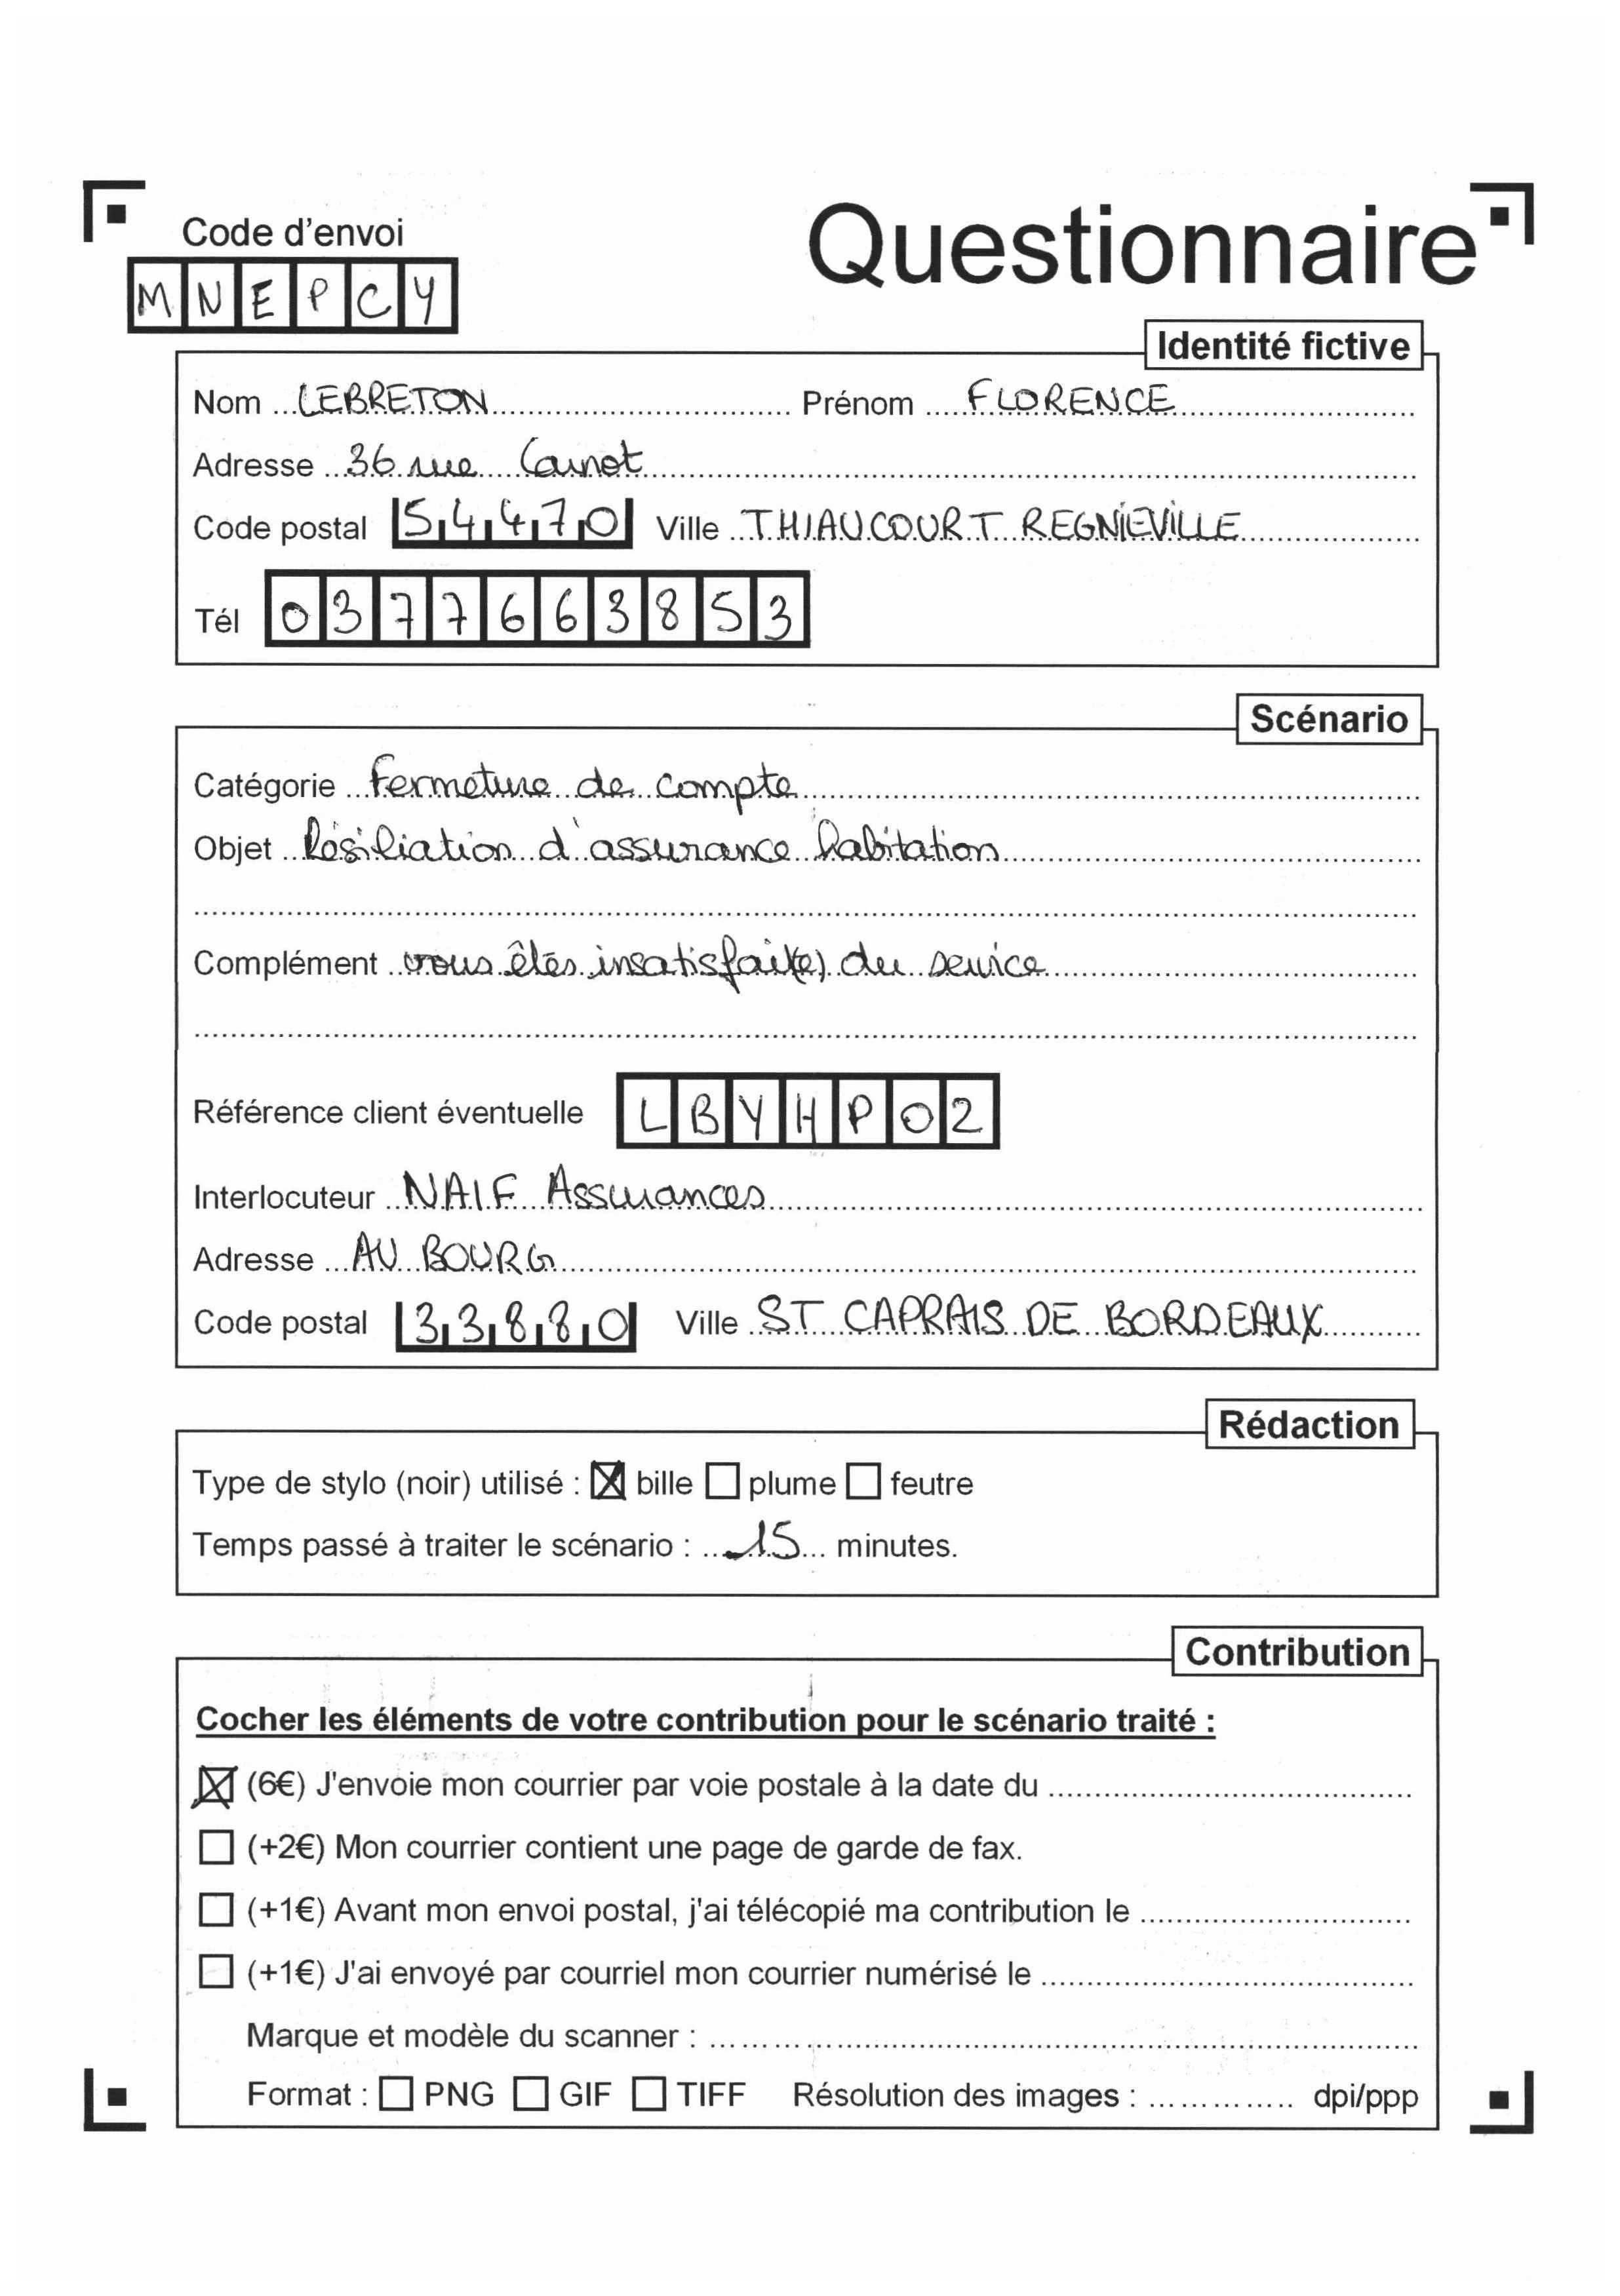 Code d'envoi
Questionnaire
MNEPCY
Identité fictive
Nom LEBRETON Prénom FLORENCE
Adresse 36 rue Carnot
Code postal 54470 Ville THIAUCOURT REGNIEVILLE
Tél 0377663853
Scénario
Catégorie Fermeture de compte
Objet Résiliation d'assurance habitation
Complément vous êtes insatisfait(e) du service
Référence client éventuelle LBYHP02
Interlocuteur NAIF Assurances
Adresse AU BOURG
Code postal 33880 Ville ST CAPRAIS DE BORDEAUX
Rédaction
Type de stylo (noir) utilisé : ☒ bille ☐ plume ☐ feutre
Temps passé à traiter le scénario : 15 minutes.
Contribution
Cocher les éléments de votre contribution pour le scénario traité :
☒ (6€) J'envoie mon courrier par voie postale à la date du
☐ (+2€) Mon courrier contient une page de garde de fax.
☐ (+1€) Avant mon envoi postal, j'ai télécopié ma contribution le
☐ (+1€) J'ai envoyé par courriel mon courrier numérisé le
Marque et modèle du scanner :
Format : ☐ PNG ☐ GIF ☐ TIFF Résolution des images : dpi/ppp